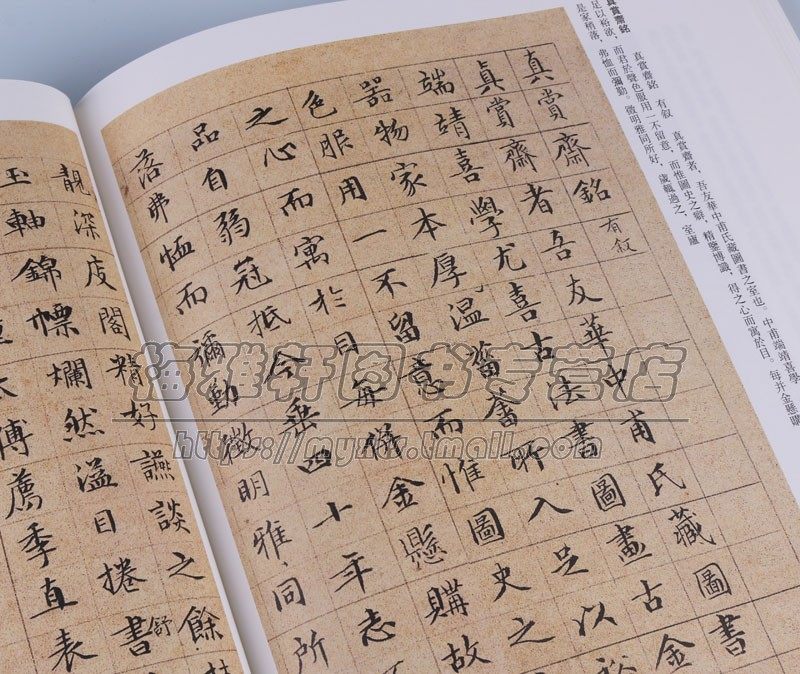 真賞齋銘
真賞齋銘 有叙 真賞齋者，吾友華中甫氏藏圖書之室也。中甫端靖喜學
足以裕欲，而君於聲色服用一不留意，而惟圖史之癖，精鑒博識，得之心而寓於目。每并金懸購
是家稍落，弗恤而彌勤。徵明雅同所好，歲輒過之，室廬
真賞齋銘有叙
真賞齋者吾友華中甫氏藏圖書
端靖喜學尤喜古法書圖畫古金
器物家本厚溫菑畬所入足以裕
色服用一不留意而惟圖史之
之心而寓於目每并金懸購故
品自弱冠抵今垂四十年志
落弗恤而彌勤徵明雅同所
靚深庋閣精好讌談之餘
玉軸錦幖爛然溢目捲書舒
太傅薦季直表
海雅轩图书专营店